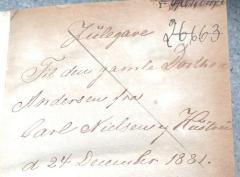 26663
Julegave
Til den gamle Dorthea
Andersen fra
Carl Nielsen og Hustru
d 24 December 1881.